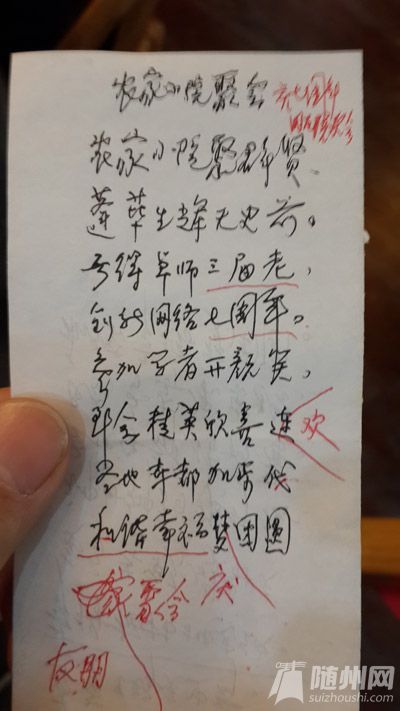 农家小院聚会
农家小院聚群贤
蓬荜生辉无史前。
三届老,
创新网络七周年。
参加学者开颜笑,
联合精英欣喜连 欢
圣地车都加步伐
和谐幸福梦团圆
家宴会 庆
友朋
随州网
suizhoushi.com